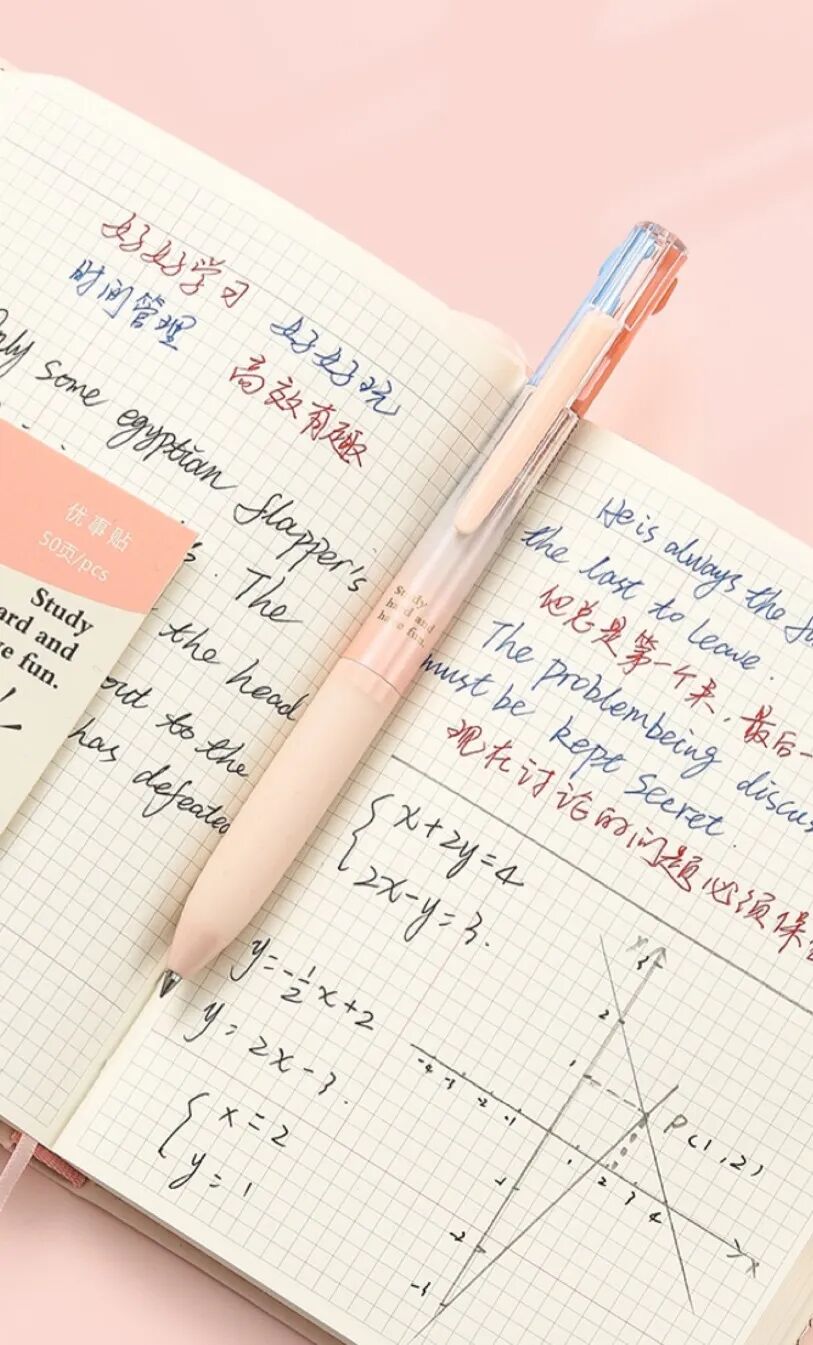 好好学习
时间管理
好好玩
高效有趣
Only some egyptian flapper's
The
the head
out to the
has defeated
优事贴
50页/pcs
Study
ard and
ve fun.
Study
hard and
have fun.
He is always the
the last to leave.
他总是第一个来,最后一
The problem being discus
must be kept secret.
现在讨论的问题必须保
x+2y=4
2x-y=3.
y=-1/2x+2
y=2x-3.
x=2
y=1
y
3
2
1
-4 -3 -2 -1
1 2 3 4
x
P(1,2)
-1
-2
-3